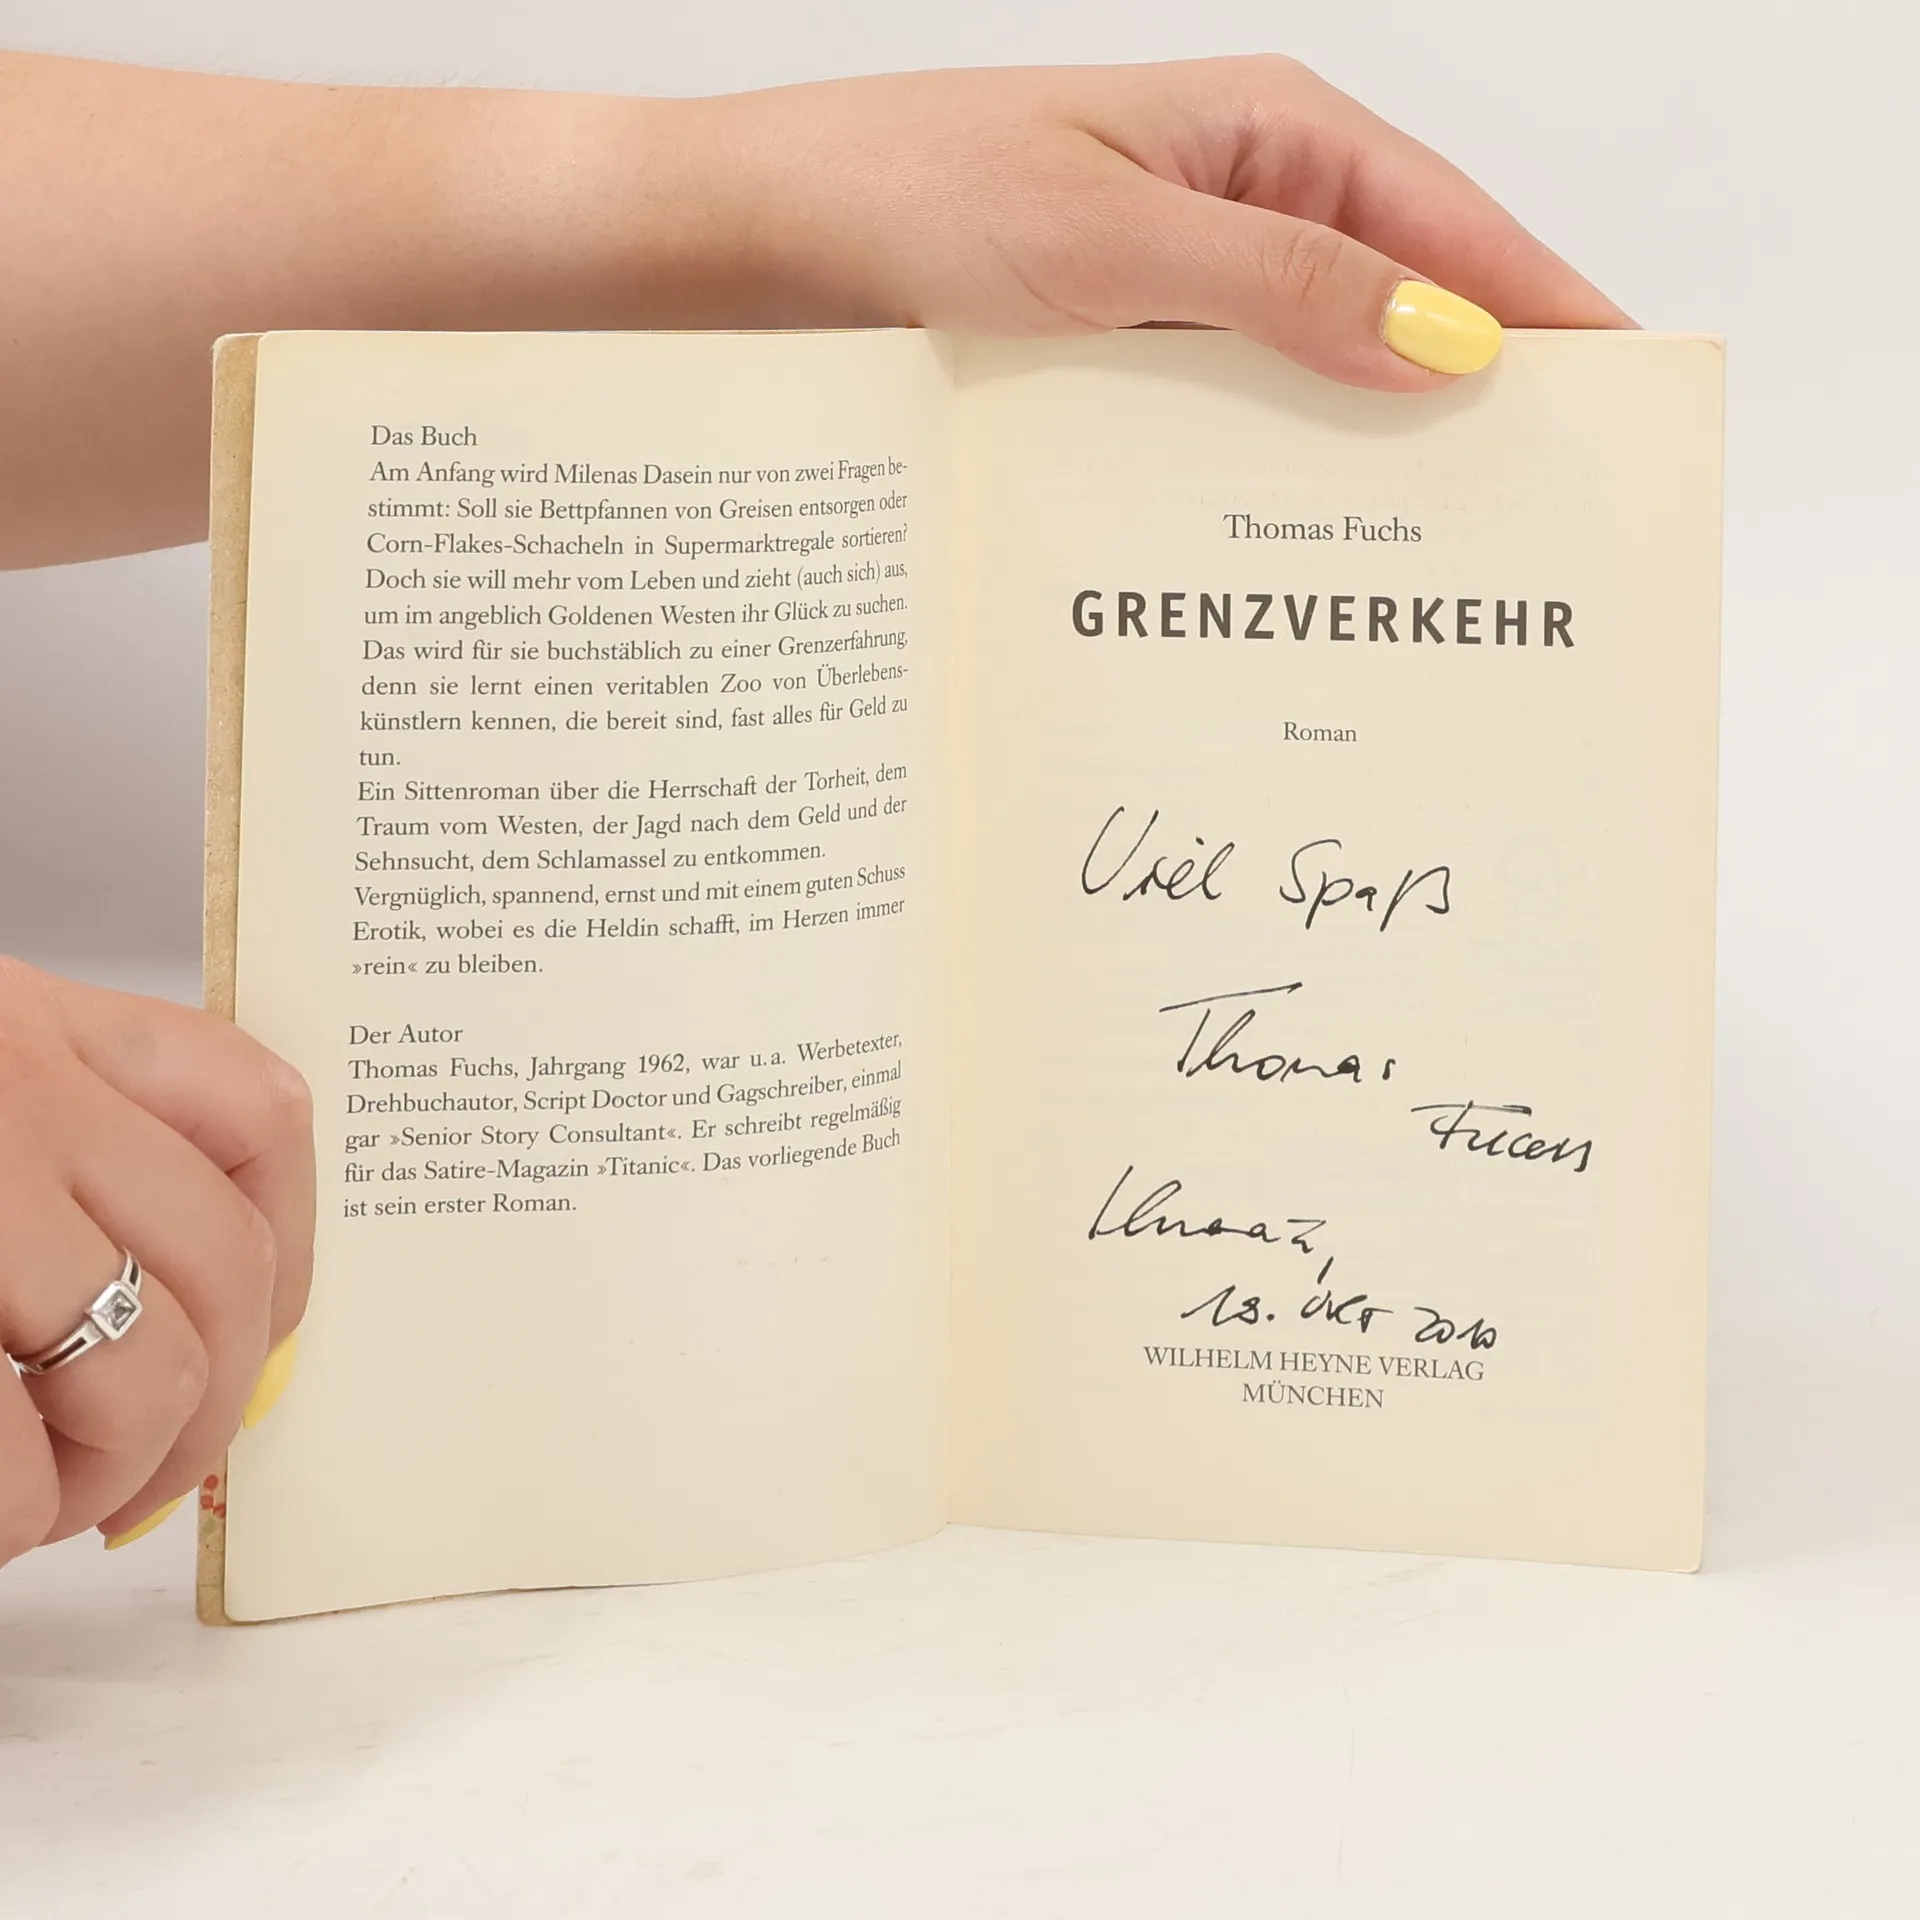 Das Buch
Am Anfang wird Milenas Dasein nur von zwei Fragen be-
stimmt: Soll sie Bettpfannen von Greisen entsorgen oder
Corn-Flakes-Schacheln in Supermarktregale sortieren?
Doch sie will mehr vom Leben und zieht (auch sich) aus,
um im angeblich Goldenen Westen ihr Glück zu suchen.
Das wird für sie buchstäblich zu einer Grenzerfahrung,
denn sie lernt einen veritablen Zoo von Überlebens-
künstlern kennen, die bereit sind, fast alles für Geld zu
tun.
Ein Sittenroman über die Herrschaft der Torheit, dem
Traum vom Westen, der Jagd nach dem Geld und der
Sehnsucht, dem Schlamassel zu entkommen.
Vergnüglich, spannend, ernst und mit einem guten Schuss
Erotik, wobei es die Heldin schafft, im Herzen immer
»rein« zu bleiben.
Der Autor
Thomas Fuchs, Jahrgang 1962, war u.a. Werbetexter,
Drehbuchautor, Script Doctor und Gagschreiber, einmal
gar »Senior Story Consultant«. Er schreibt regelmäßig
für das Satire-Magazin »Titanic«. Das vorliegende Buch
ist sein erster Roman.
Thomas Fuchs
GRENZVERKEHR
Roman
Viel Spaß
Thomas
Fuchs
Okt 2010
WILHELM HEYNE VERLAG
MÜNCHEN